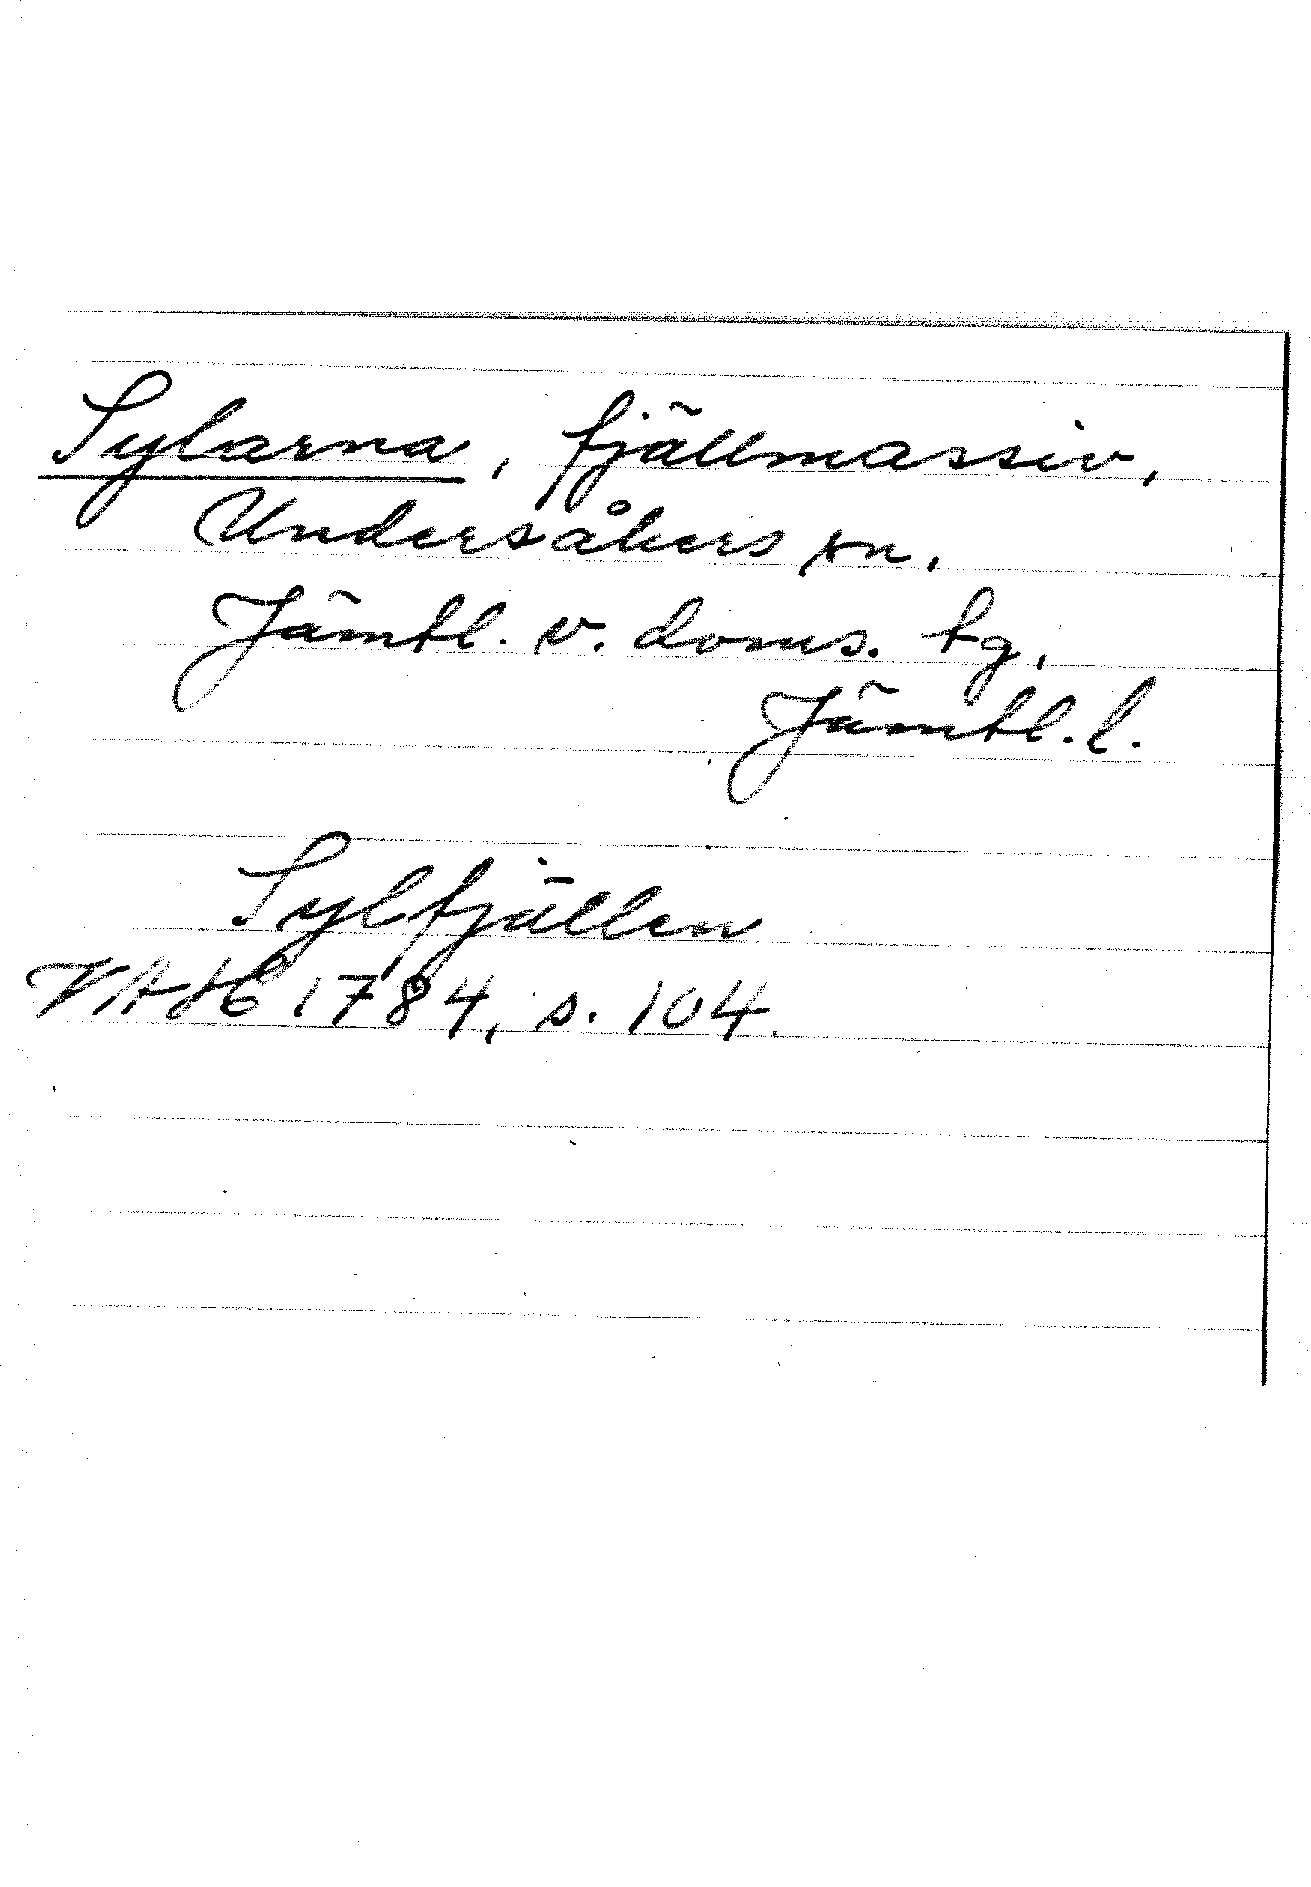 Sylarna, fjällmassiv,
Undersåkers sn,
Jämtl. v. doms. tg,
Jämtl. l.
Sylfjällen
VAH 1784, s. 104.